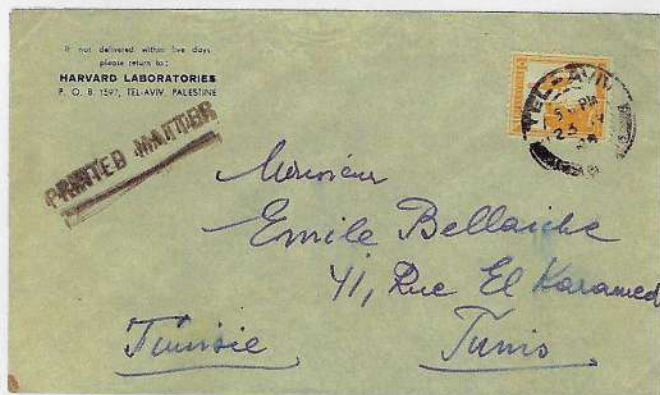 If not delivered within five days
please return to:
HARVARD LABORATORIES
P. O. B. 1597, TEL-AVIV, PALESTINE
PRINTED MATTER
TEL-AVIV
5 PM
Monsieur
Emile Bellaiche
41, Rue El Karamed
Tunisie Tunis